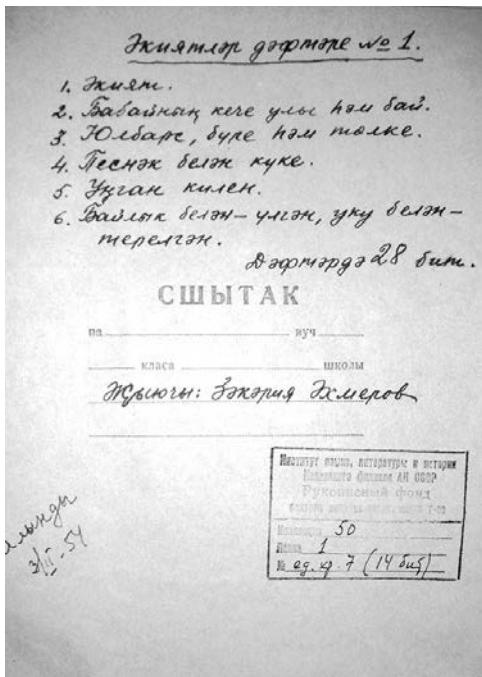 Әкиятләр дәфтәре № 1.
1. Әкият.
2. Бабайның кече улы һәм бай.
3. Юлбарс, бүре һәм төлке.
4. Песнәк белән күке.
5. Уңган килен.
6. Байлык белән – үлгән, уку белән –
терелгән.
Дәфтәрдә 28 бит.
СШЫТАК
па вуч
класа школы
Җыючы: Зәкәрия Әхмеров
Институт языка, литературы и истории
Казанского филиала АН СССР
Рукописный фонд
50
1
№ ед. хр. 7 (14 бит)
3/II-54